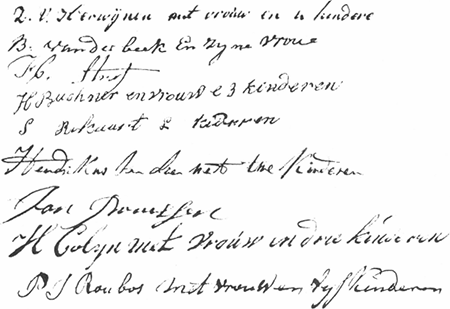 V. Herwijnen met vrouw en 4 kindere
B. van der beek En zyne vrou
H Buchner en vrouw e 3 kinderen
S Rykaart 2 kideren
Hendrikus met twe kinderen
Jan
H Colyn met vrouw en drie kinderen
P J Roubos met vrouw en vyf kinderen